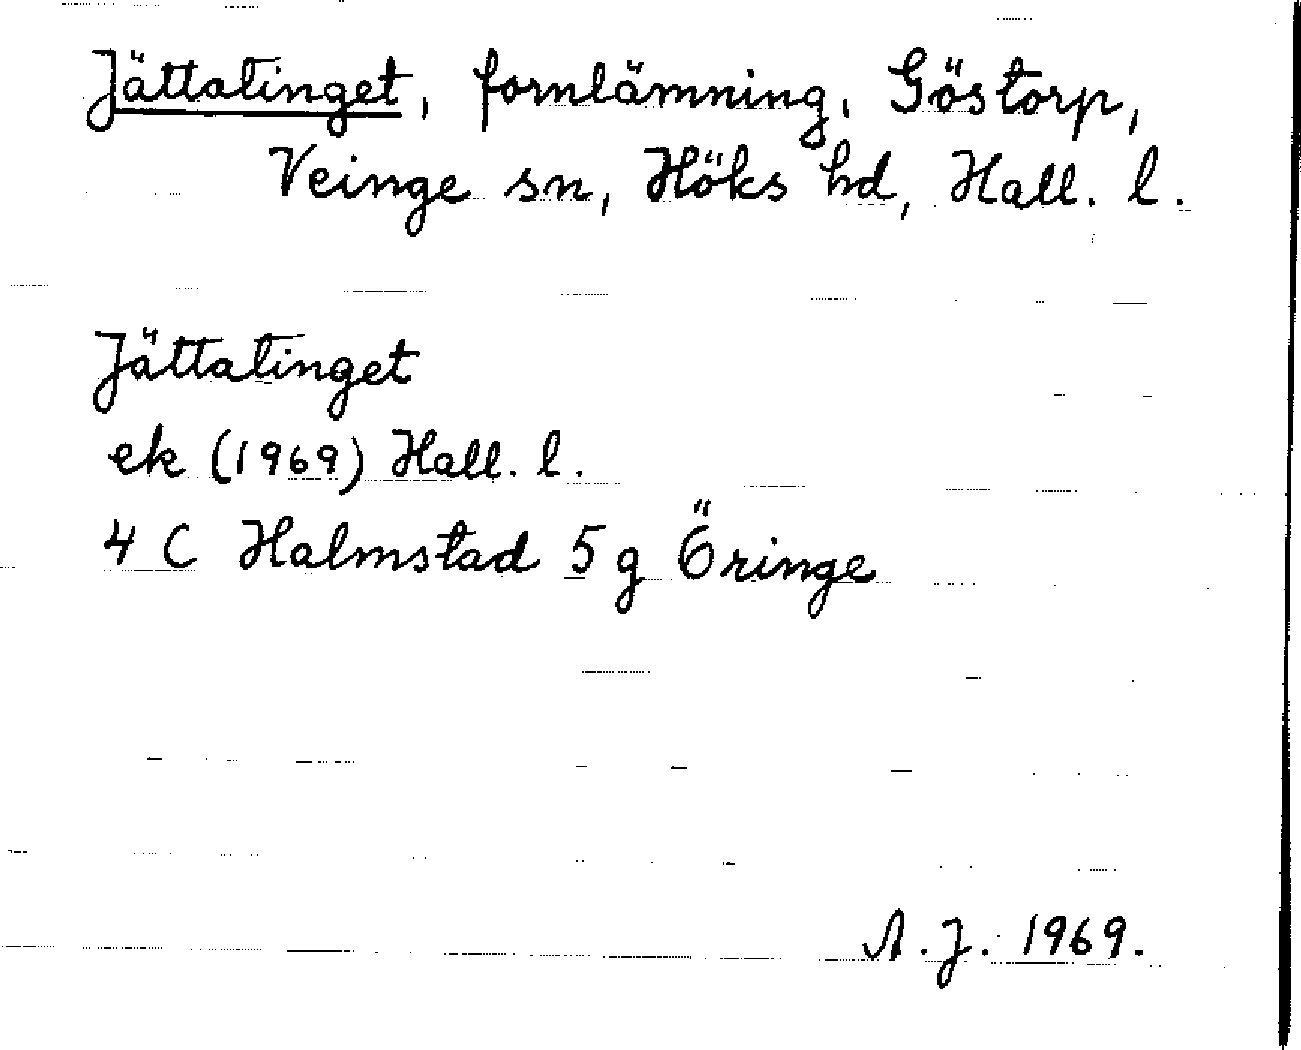 Jättatinget, fornlämning, Göstorp,
Veinge sn, Höks hd, Hall. l.
Jättatinget
ek (1969) Hall. l.
4 C Halmstad 5 g Öringe
A. J. 1969.